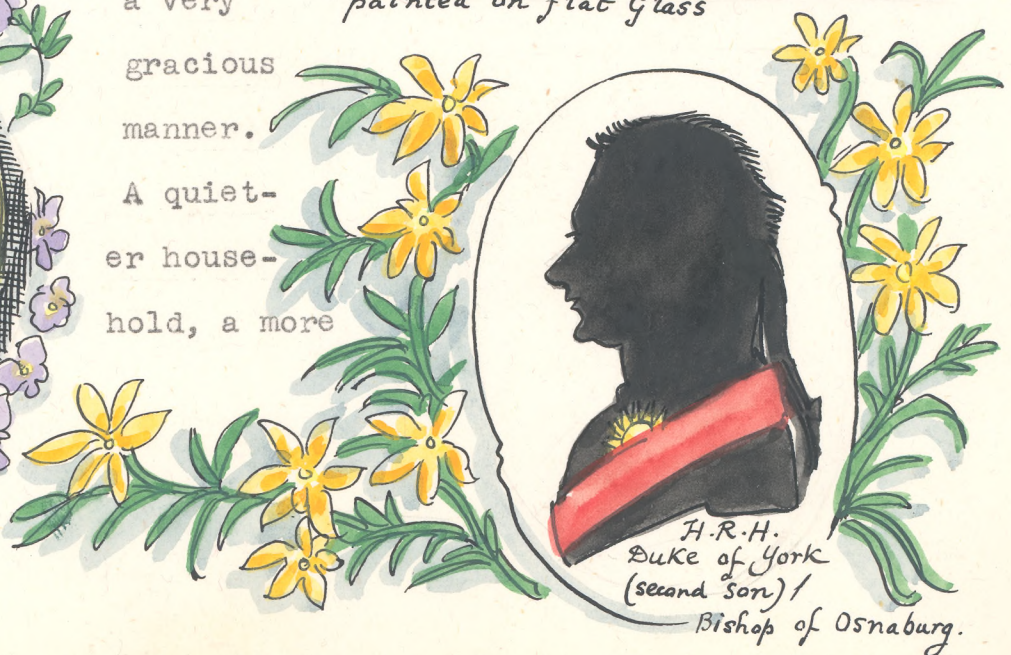 a very
painted on flat glass
gracious
manner.
A quiet-
er house-
hold, a more
H.R.H.
Duke of York
(second son) /
Bishop of Osnaburg.